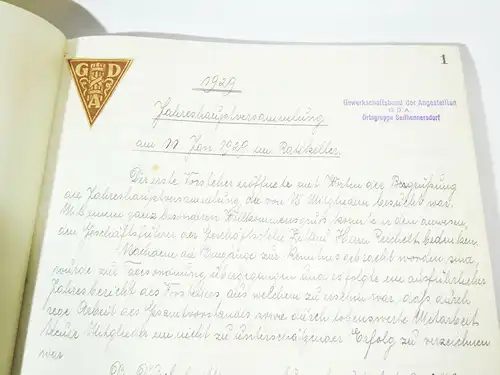 G D
A
1
1929
Gewerkschaftsbund der Angestellten
G.D.A.
Ortsgruppe Seifhennersdorf
Jahreshauptversammlung
am 11. Jan. 1929 im Ratskeller.
Der erste Vorsteher eröffnete mit Worten der Begrüßung
die Jahreshauptversammlung, die von 18 Mitgliedern besucht war.
Mit einem ganz besonderen Willkommensgruß konnte er den anwesen-
den Geschäftsführer der Geschäftsstelle Zittau Herrn Reichelt bedenken.
Nachdem die Eingänge zur Kenntnis gebracht worden sind,
wurde zur Tagesordnung übergegangen und es folgte ein ausführlicher
Jahresbericht des Vorstehers aus welchem zu ersehen war, daß durch
rege Arbeit des Gesamtvorstandes sowie durch lobenswerte Mitarbeit
der Mitglieder ein nicht zu unterschätzender Erfolg zu verzeichnen
war.